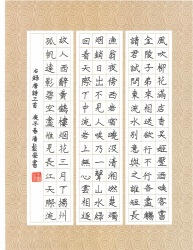 風吹柳花滿店香吳姬壓酒喚客嘗
金陵子弟來相送欲行不行各盡觴
請君試問東流水別意與之誰短長
漁翁夜傍西岩宿曉汲清湘燃楚竹
煙銷日出不見人欸乃一聲山水綠
回看天際下中流岩上無心雲相逐
故人西辭黃鶴樓煙花三月下揚州
孤帆遠影碧空盡惟見長江天際流
右錄唐詩三首 庚子春